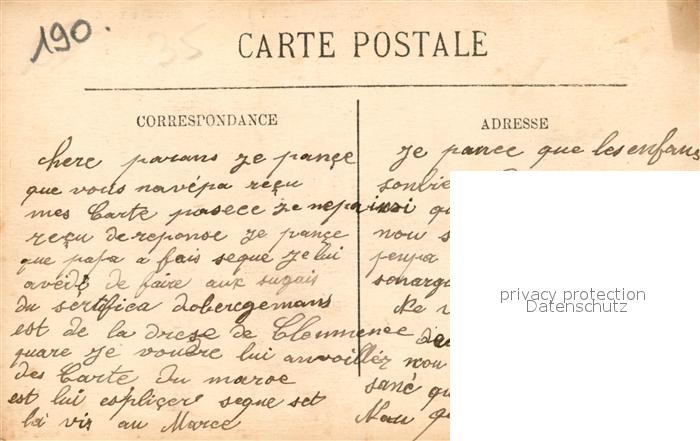 190.
35
CARTE POSTALE
CORRESPONDANCE
chere parans je pançe
que vous navépa reçu
mes Carte pasece je nepa
reçu de reponse je pançe
que papa a fais seque je lui
avéid de faire aux sugais
du sertifica dobergemans
est de la drese de Clemence
quare je voudre lui anvoillér
des Carte du maroc
est lui espliçer seque set
la vis au Maroc
ADRESSE
Je pance que les enfans
insi qu
nou s
penpa
Ne v
nou
sané qu
privacy protection
Datenschutz